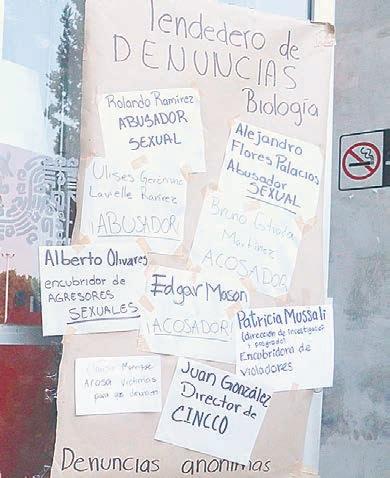 Tendedero de
DENUNCIAS
Biología
Rolando Ramírez
ABUSADOR
SEXUAL
Alejandro
Flores Palacios
Abusador
SEXUAL
Ulises
Lavielle Ramírez
¡ABUSADOR!
Bruno
Martínez
ACOSADOR
Alberto Olivares
encubridor de
AGRESORES
SEXUALES
Edgar Mason
¡ACOSADOR!
Patricia Mussali
(dirección de investigación
y posgrado)
Encubridora de
violadores
Acosa víctimas
para que
Juan González
Director de
CINCCO
Denuncias anónimas